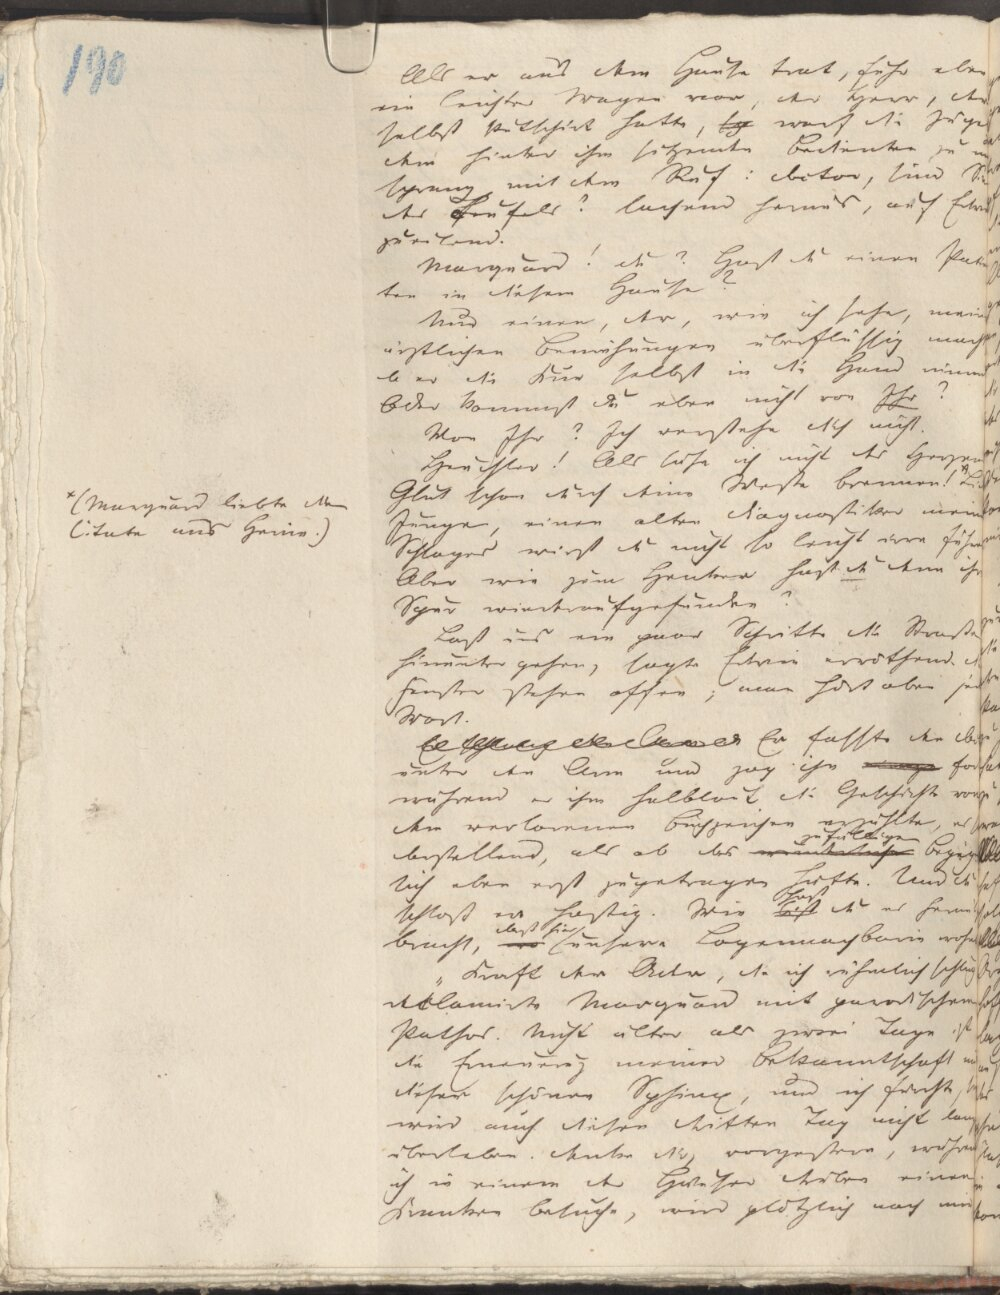 190
Als er aus dem Hause trat, fuhr eben
ein leichter Wagen vor, der Herr, der
selbst kutschirt hatte, warf die Zügel
dem hinter ihm sitzenden Bedienten zu u
sprang mit dem Ruf: doctor, sind Sie
des Teufels? lachend heraus, auf Edwin
zueilend.
Marquard! du? Hast du einen Patien
ten in diesem Hause?
Nur einen, der, wie ich sehe, meine
ärztlichen Bemühungen überflüssig macht
da er die Kur selbst in die Hand nimmt
Oder kommst du eben nicht von Ihr?
Von Ihr? Ich verstehe dich nicht.
Heuchler! Als sähe ich nicht des Herzens
Glut schon durch deine Weste brennen!*
Junge, einen alten Diagnostiker meines
Schlages wirst du nicht so leicht irre führen
Aber wie zum Henker hast du denn ihre
Spur wiederaufgefunden?
*(Marquard liebte die
Citate aus Heine.)
Laß uns ein paar Schritte die Straße
hinunter gehen, sagte Edwin erröthend. Die
Fenster stehen offen; man hört oben jedes
Wort.
Er faßte den
unter den Arm und zog ihn fort
während er ihm halblaut die Geschichte von
dem verlorenen Buchzeichen erzählte, es so
darstellend, als ob das zufällige
sich eben erst zugetragen hätte. Und du
schloß er hastig. Wie hast du es herausge
bracht, daß hier unsere Logennachbarin wohnt
„Kraft der Ader, die ich rühmlich schlug
declamirte Marquard mit parodischem
Pathos. Nicht älter als zwei Tage ist
die Erneuerung meiner Bekanntschaft mit
dieser schönen Sphinx, und ich fürchte, sie
wird auch diesen dritten Tag nicht lange
überleben. Denke dir, vorgestern, während
ich in einem der Häuser drüben einen
Kranken besuche, wird plötzlich nach mir